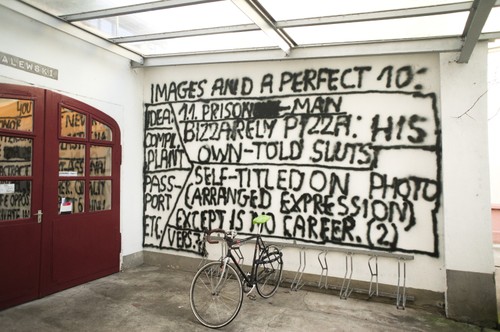 ALEWSKI
IMAGES AND A PERFECT 10:
IDEA: 11. PRISON MAN
COMPL. BIZZARELY PIZZA: HIS
PLANT OWN-TOLD SLUTS
PASS- SELF-TITLED ON PHOTO
PORT (ARRANGED EXPRESSION)
ETC. EXCEPT IS NO CAREER. (2)
VERS.
YOU
NEW
QUALITY